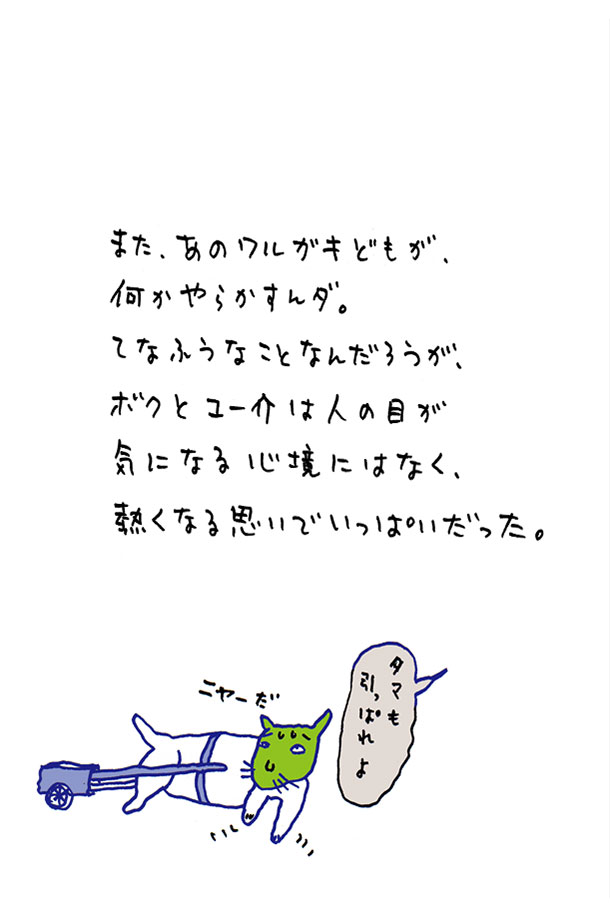 また、あのワルガキどもが、
何かやらかすんダ。
てなふうなことなんだろうが、
ボクとユー介は人の目が
気になる心境にはなく、
熱くなる思いでいっぱいだった。
タマも
引っぱれよ
ニャーだ